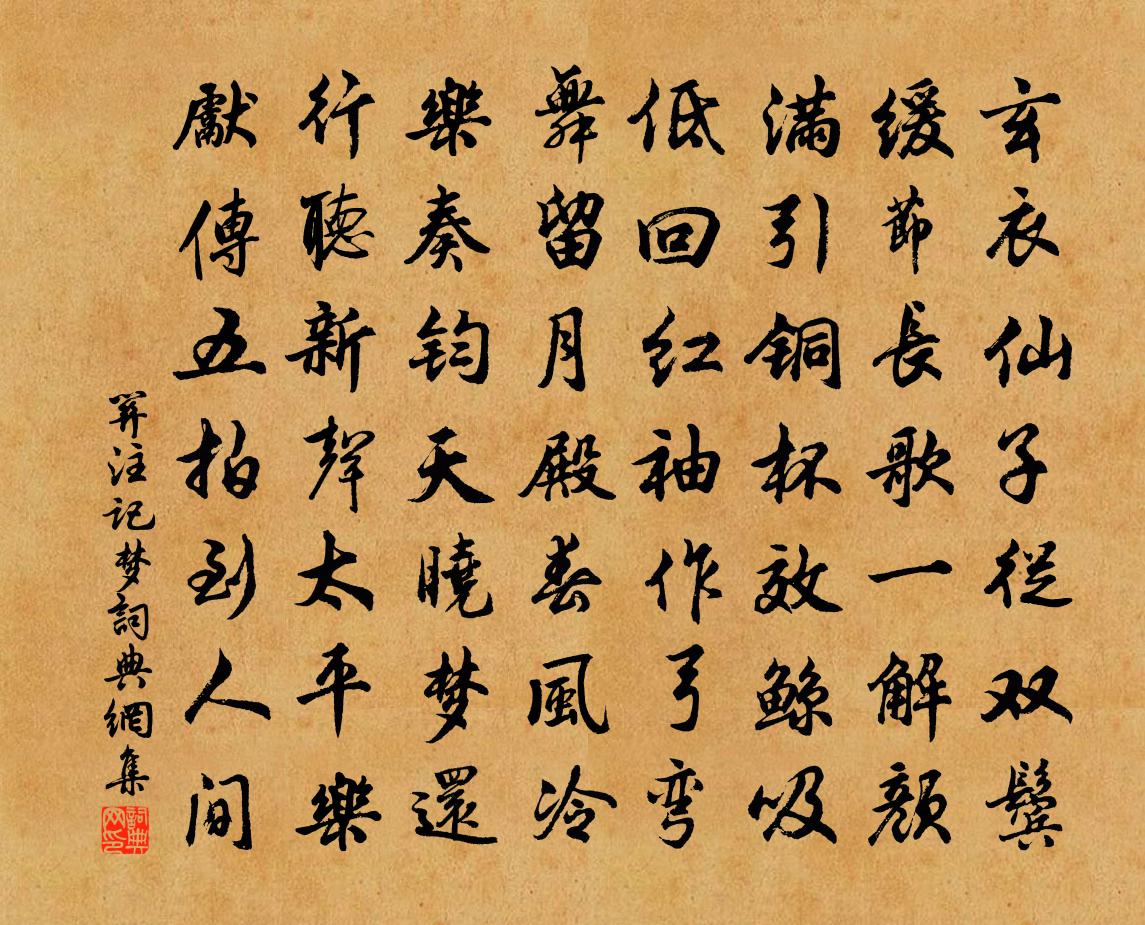 玄衣仙子从双鬟
缓節長歌一解颜
满引铜杯效鲸吸
低回红袖作弓弯
舞留月殿春風冷
樂奏鈞天曉梦還
行聽新聲太平樂
獻傳五拍到人间
算注记梦詞典網集
詞典網印